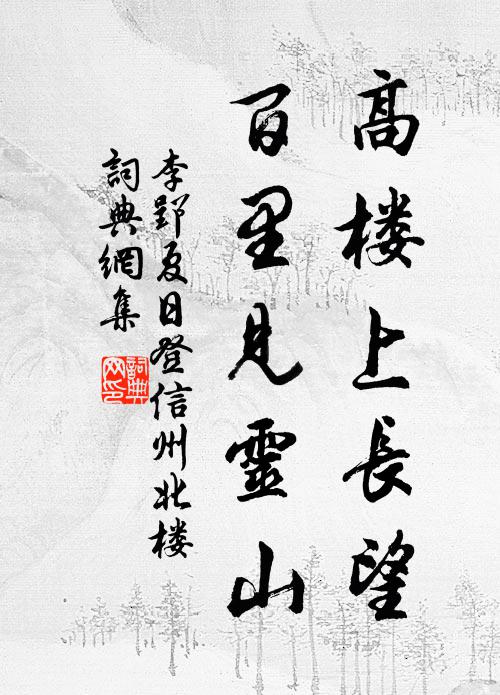 高楼上長望
百里見靈山
李郢夏日登信州北楼
詞典網集
詞典
网印